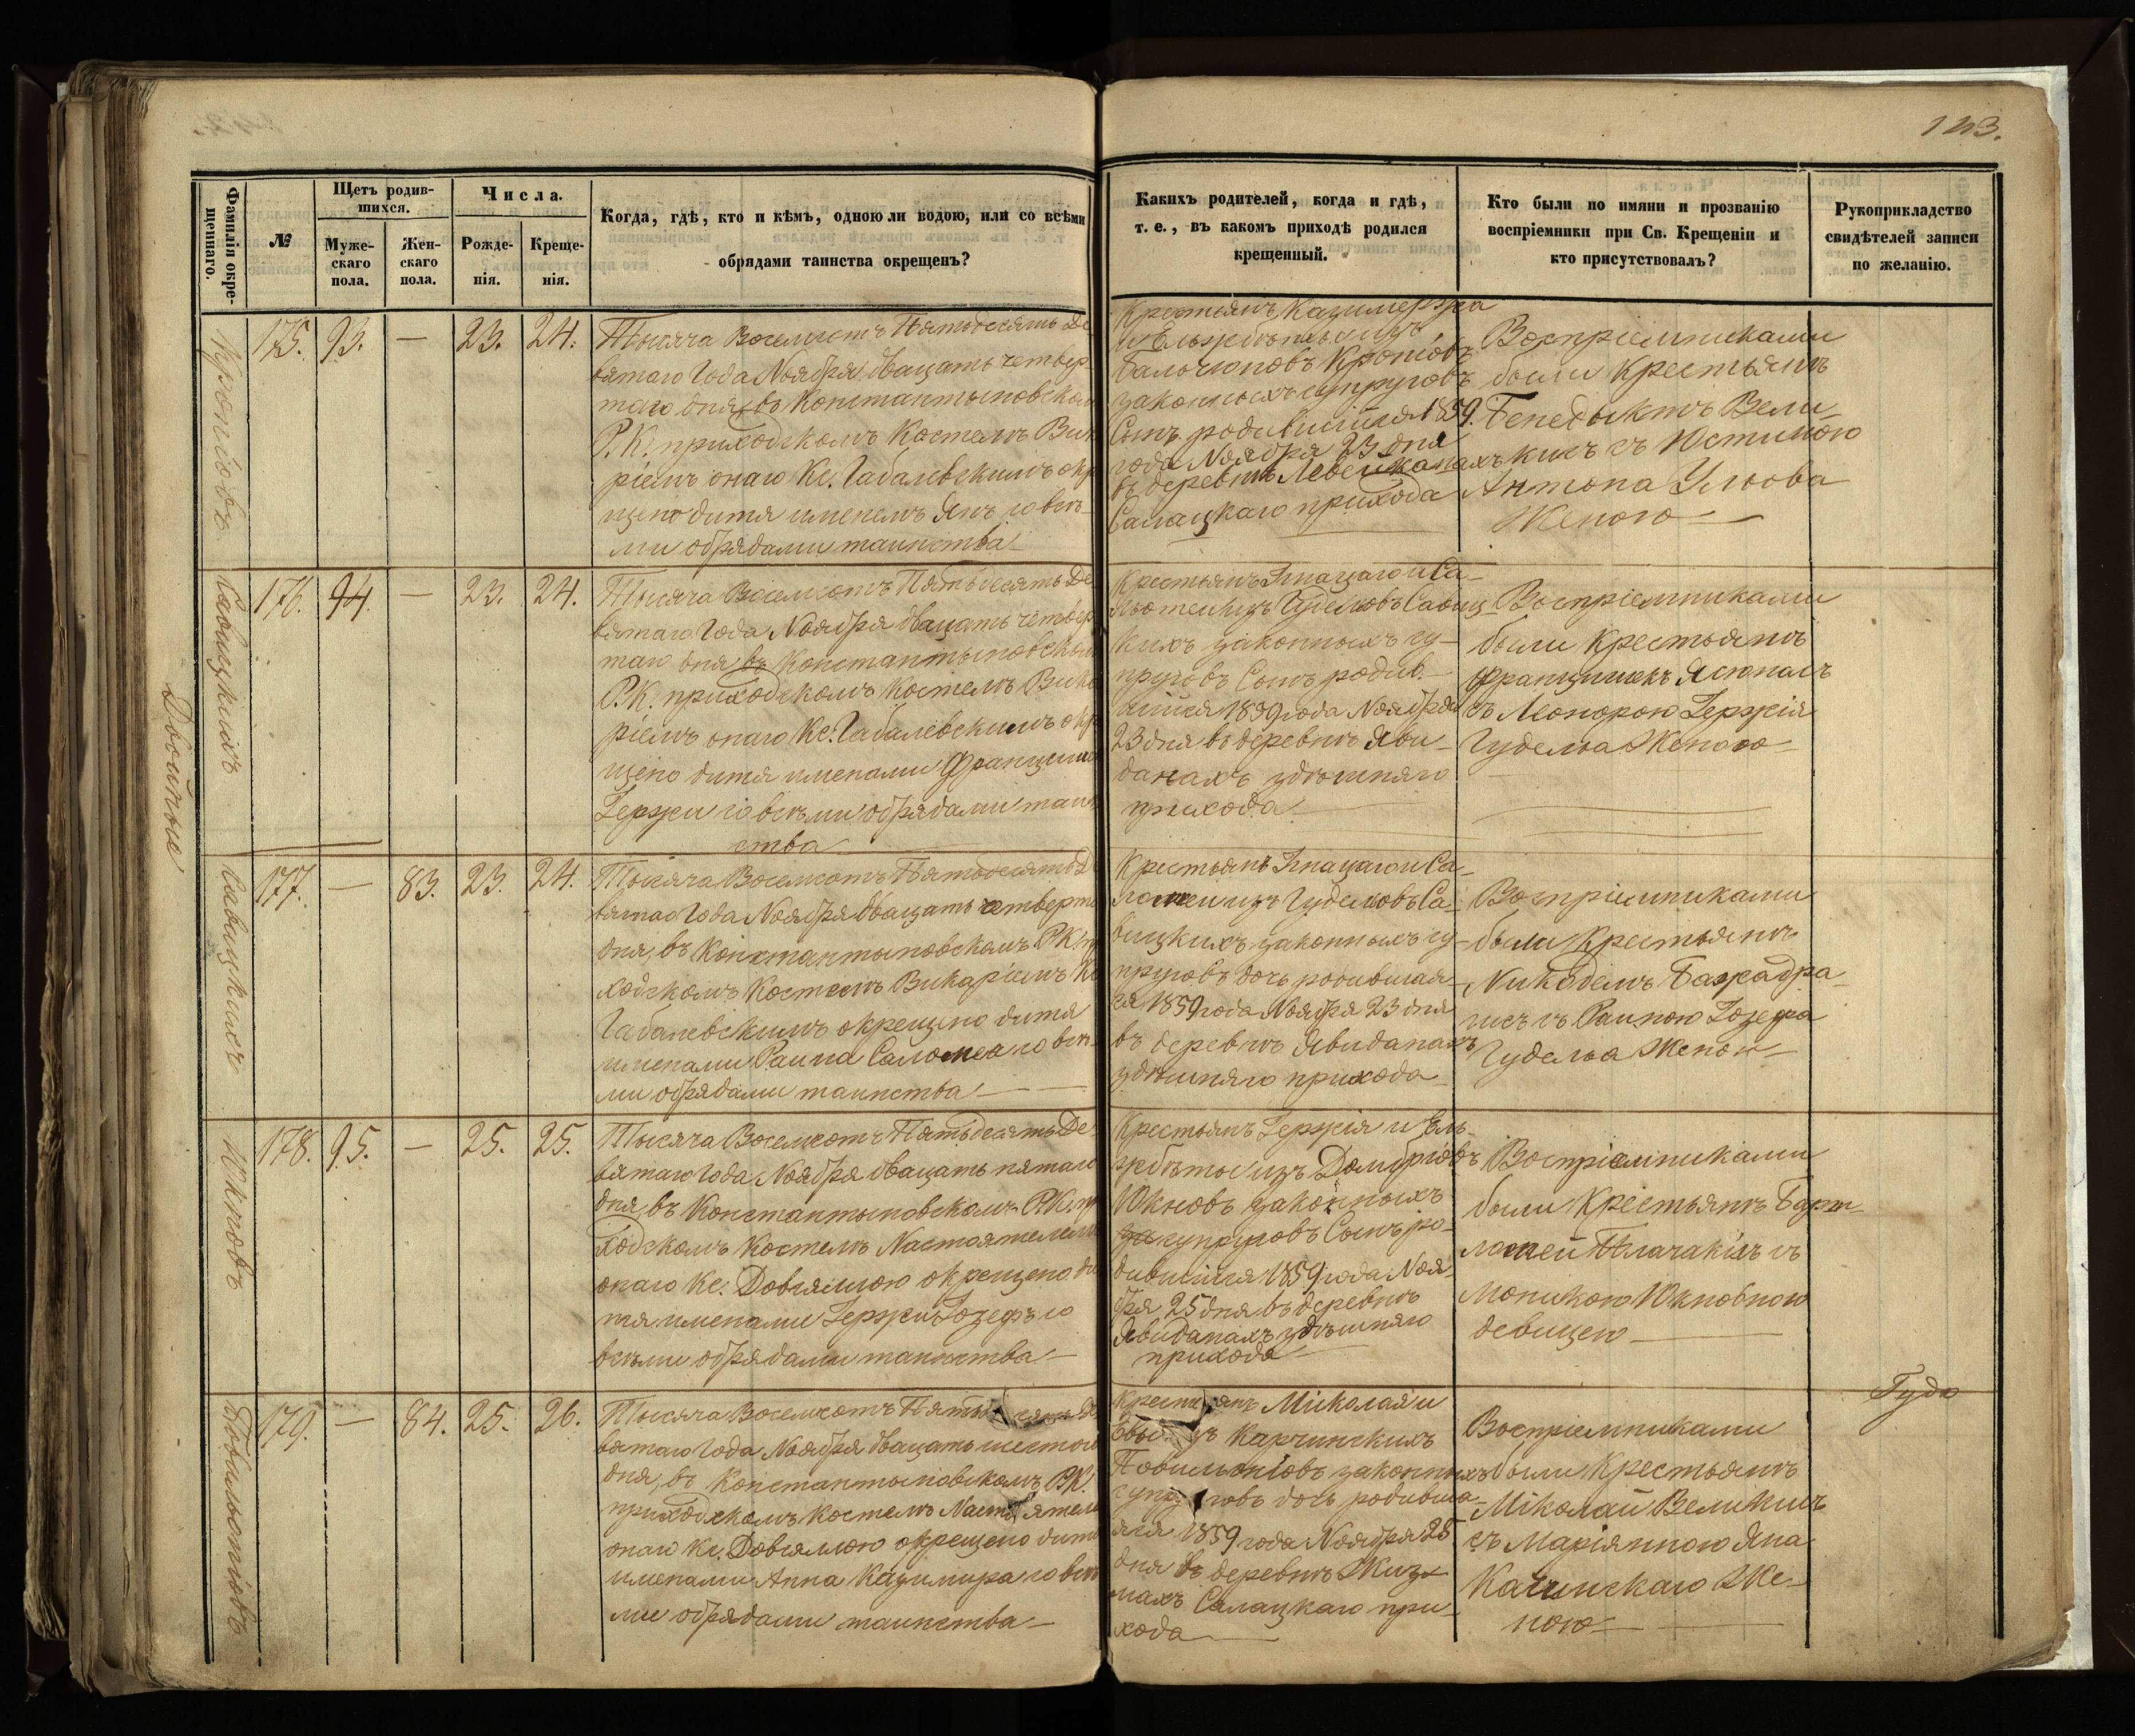 123.
Фамилія окре-
щеннаго.
№
Щетъ родив-
шихся.
Муже-
скаго
пола.
Жен-
скаго
пола.
Числа.
Рожде-
нія.
Креще-
нія.
Когда, гдѣ, кто и кѣмъ, одною ли водою, или со всѣми
обрядами таинства окрещенъ?
Какихъ родителей, когда и гдѣ,
т. е., въ какомъ приходѣ родился
крещенный.
Кто были по имяни и прозванію
воспріемники при Св. Крещеніи и
кто присутствовалъ?
Рукоприкладство
свидѣтелей записи
по желанію.
175. 93. — 23. 24.
Тысяча Восемсотъ Пятьдесятъ Де
вятаго Года Ноября двацать четвер
таго дня въ Константыновском
Р.К. приходскомъ Костелѣ Вик
ріемъ онаго Кс. Габалевскимъ окр
щено дитя именемъ Янъ со всѣ-
ми обрядами таинства
Крестьянъ Казимержа
законныхъ супруговъ
Сынъ родившійся 1859.
года Ноября 23 дня
въ деревнѣ
Салацкаго прихода
Воспріемниками
были Крестьянъ
Бенедыктъ Вели-
кисъ съ Юстиною
Антона
Женою
Двойные
176. 94. — 23. 24.
Тысяча Восемсотъ Пятьдесятъ Де
вятаго Года Ноября двацать четвер
таго дня въ Константыновском
Р.К. приходскомъ Костелѣ Вика
ріемъ онаго Кс. Габалевскимъ окр
щено дитя именами Францише
Іержи со всѣми обрядами таин
ства
Крестьянъ Игнацаго и Са-
ломеи изъ Гуделовъ Савиц
кихъ законныхъ су-
пруговъ Сынъ родив-
шійся 1859 года Ноября
23 дня въ деревнѣ Яви-
данахъ здѣшняго
прихода
Воспріемниками
были Крестьянъ
Францишекъ Ясюнасъ
съ Леонорою Іержія
Гуделя Женою
Савицкихъ
177. — 83. 23. 24.
Тысяча Восемсотъ Пятьдесятъ Д
вятаго Года Ноября двацать четверт
дня, въ Константыновскомъ Р.К. п
ходскомъ Костелѣ Викаріемъ Кс
Габалевскимъ окрещено дитя
именами Раина Саломеа со всѣ-
ми обрядами таинства
Крестьянъ Игнацаго и Са-
ломеи изъ Гуделовъ Са-
вицкихъ законныхъ су-
пруговъ дочь родившая-
ся 1859 года Ноября 23 дня
въ деревнѣ Явиданахъ
здѣшняго прихода
Воспріемниками
были Крестьянъ
Никодемъ
съ Раиною Іозефа
Гуделя Женою
Юкновъ
178. 95. — 25. 25.
Тысяча Восемсотъ Пятьдесятъ Де-
вятаго Года Ноября двацать пятаго
дня, въ Константыновскомъ Р.К. пр
ходскомъ Костелѣ Настоятелем
онаго Кс. Довгялло окрещено ди
тя именами Іержи Іозефъ со
всѣми обрядами таинства
Крестьянъ Іержія и Ель-
жбѣты изъ Домбровъ
Юкновъ законныхъ
супруговъ Сынъ ро-
дившійся 1859 года Ноя-
бря 25 дня въ деревнѣ
Явиданахъ здѣшняго
прихода
Воспріемниками
были Крестьянъ Барт-
ломей
Моникою Юкновною
девицею
179. — 84. 25. 26.
Тысяча Восемсотъ Пять есятъ Де
вятаго Года Ноября двацать шестого
дня, въ Константыновскомъ Р.К.
приходскомъ Костелѣ Наст ятеле
онаго Кс. Довгялло окрещено дитя
именами Анна Казимира со всѣ
ми обрядами таинства
Крест янъ Міколая и
Карчинскихъ
законныхъ
супр говъ дочь родивша-
яся 1859 года Ноября 25
дня въ деревнѣ
Салацкаго при-
хода
Воспріемниками
были Крестьянъ
Міколай Великисъ
съ Маріянною Яна
Качинскаго Же-
ною